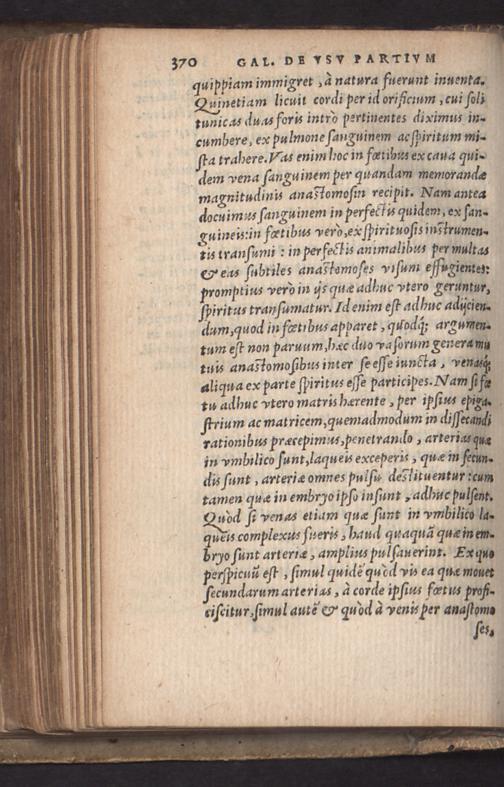 370 GAL. DE VSV PARTIVM
quippiam immigret, à natura fuerunt inuenta.
Quinetiam licuit cordi per id orificium, cui soli
tunicas duas foris intrò pertinentes diximus in-
cumbere, ex pulmone sanguinem ac spiritum mi-
sta trahere. Vas enim hoc in fœtibus ex caua qui-
dem vena sanguinem per quandam memorandæ
magnitudinis anastomosin recipit. Nam antea
docuimus sanguinem in perfectis quidem, ex san-
guineis: in fœtibus verò, ex spirituosis instrumen-
tis transumi: in perfectis animalibus per multas
& eas subtiles anastomoses visum effugientes:
promptius verò in ijs quæ adhuc vtero geruntur,
spiritus transumatur. Id enim est adhuc adijcien-
dum, quod in fœtibus apparet, quodq́; argumen-
tum est non paruum, hæc duo vasorum genera mu
tuis anastomosibus inter se esse iuncta, venasq́;
aliqua ex parte spiritus esse participes. Nam si fœ
tu adhuc vtero matris hærente, per ipsius epiga-
strium ac matricem, quemadmodum in dissecandi
rationibus præcepimus, penetrando, arterias quæ
in vmbilico sunt, laqueis exceperis, quæ in secun-
dis sunt, arteriæ omnes pulsu destituentur: cum
tamen quæ in embryo ipso insunt, adhuc pulsent.
Quòd si venas etiam quæ sunt in vmbilico la-
queis complexus fueris, haud quaquã quæ in em-
bryo sunt arteriæ, amplius pulsauerint. Ex quo
perspicuũ est, simul quidẽ quòd vis ea quæ mouet
secundarum arterias, à corde ipsius fœtus profi-
ciscitur, simul autẽ & quòd à venis per anastomo
ses,